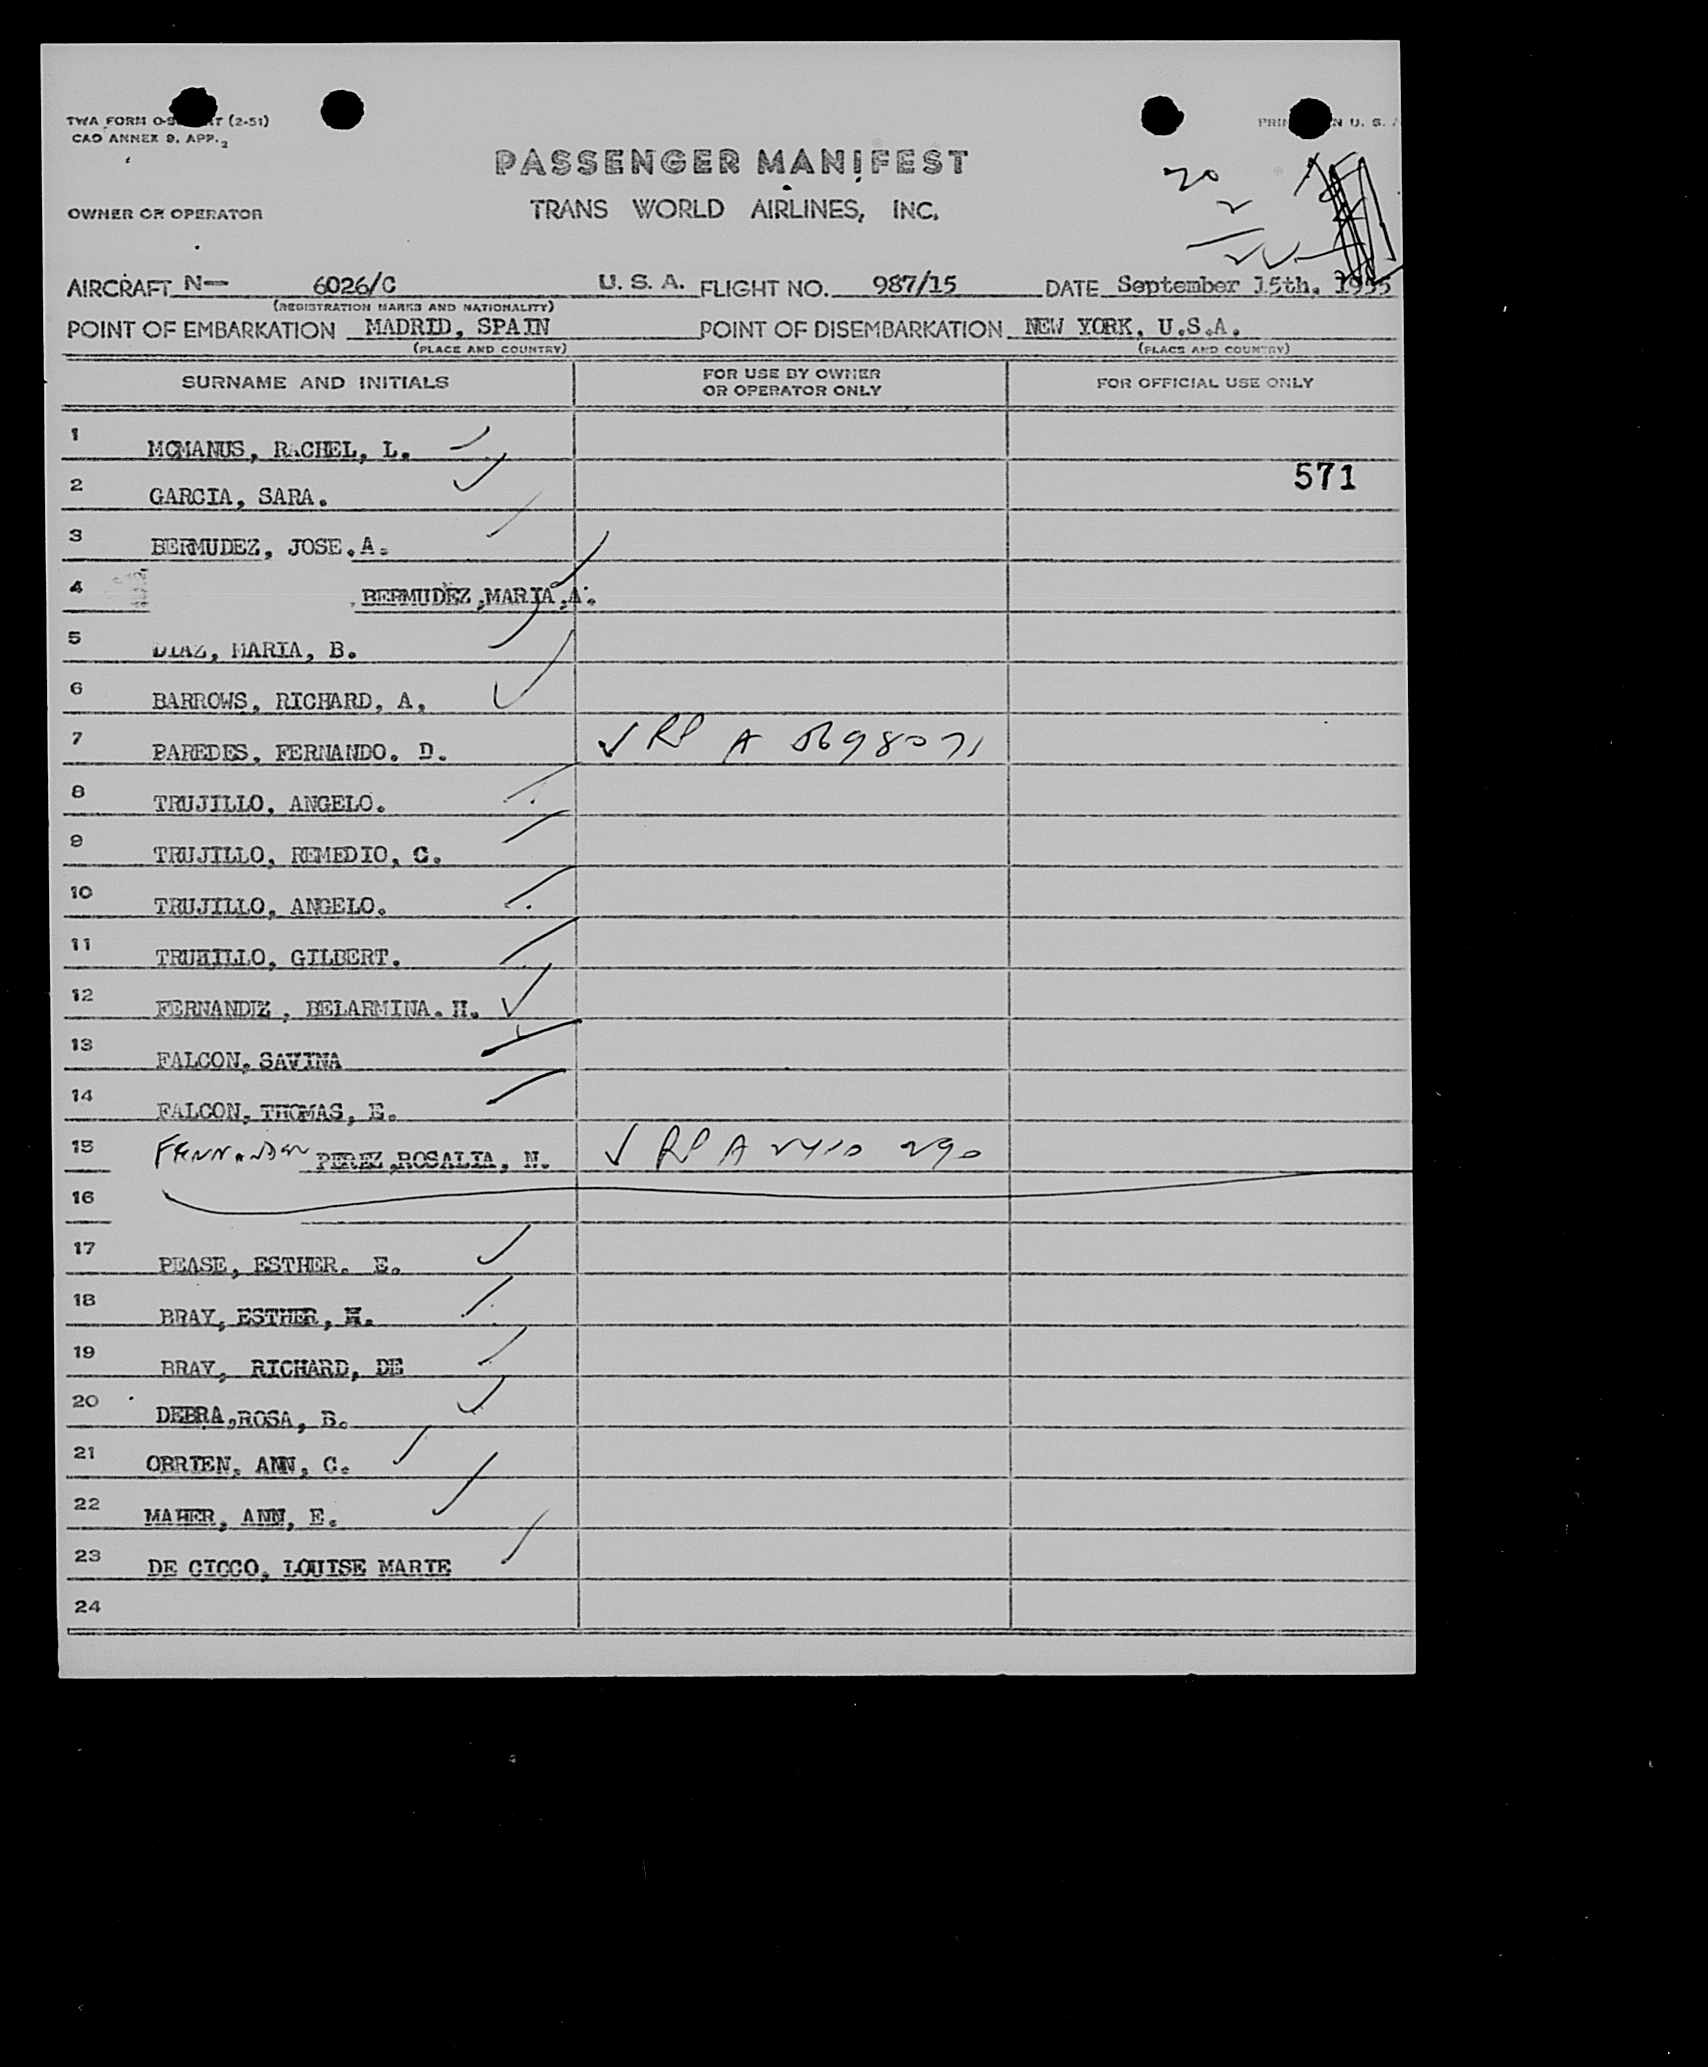 TWA FORM O-S T (2-51)
CAO ANNEX 9, APP. 2
PRIN N U. S. A
PASSENGER MANIFEST
20
2
22
OWNER OR OPERATOR
TRANS WORLD AIRLINES, INC.
AIRCRAFT N— 6026/C U. S. A. FLIGHT NO. 987/15 DATE September 15th. 1955
(REGISTRATION MARKS AND NATIONALITY)
POINT OF EMBARKATION MADRID, SPAIN POINT OF DISEMBARKATION NEW YORK, U.S.A.
(PLACE AND COUNTRY) (PLACE AND COUNTRY)
SURNAME AND INITIALS FOR USE BY OWNER OR OPERATOR ONLY FOR OFFICIAL USE ONLY
1 MCMANUS, RACHEL, L.
571
2 GARCIA, SARA.
3 BERMUDEZ, JOSE.A.
4 BERMUDEZ,MARIA,A.
5 DIAZ, MARIA, B.
6 BARROWS, RICHARD, A.
7 PAREDES, FERNANDO. D. ✓ RP A 5698071
8 TRUJILLO, ANGELO.
9 TRUJILLO, REMEDIO, C.
10 TRUJILLO, ANGELO.
11 TRUHILLO, GILBERT.
12 FERNANDIZ, BELARMINA. H.
13 FALCON, SAVINA
14 FALCON, THOMAS, E.
15 PEREZ,ROSALIA, N. ✓ RP A 2410 290
16
17 PEASE, ESTHER. E.
18 BRAY, ESTHER, H.
19 BRAY, RICHARD, DE
20 DEBRA,ROSA, B.
21 OBRIEN, ANN, C.
22 MAHER, ANN, E.
23 DE CICCO, LOUISE MARIE
24